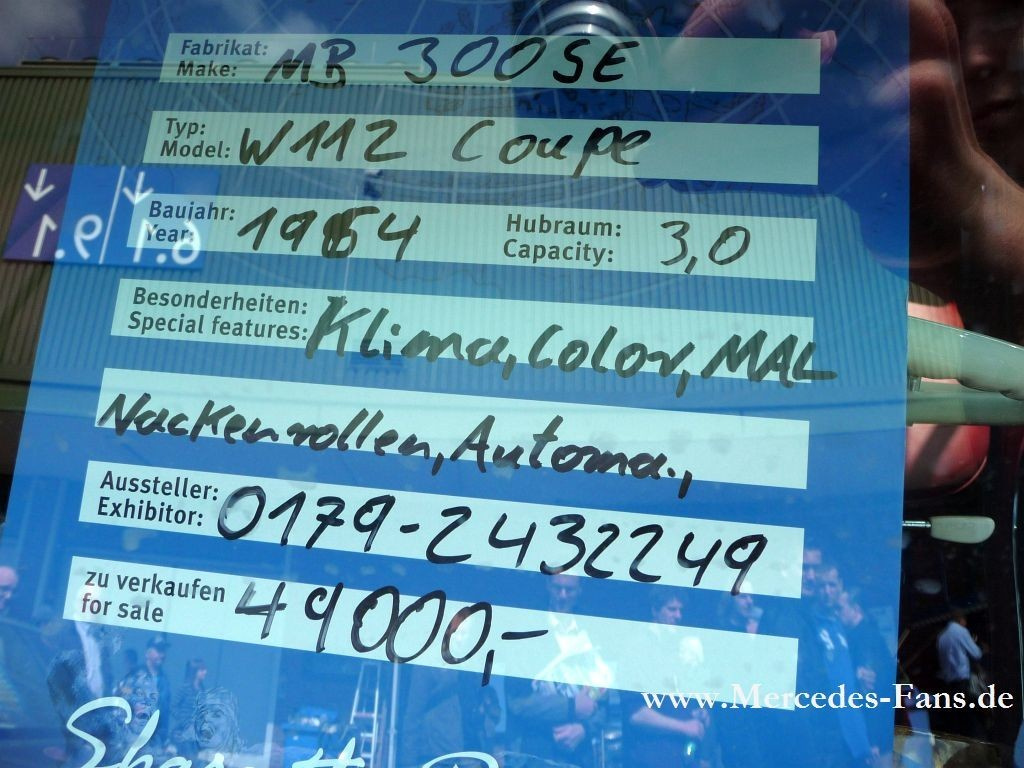 Fabrikat:
Make: MB 300SE
Typ:
Model: W112 Coupe
Baujahr:
Year: 1964
Hubraum:
Capacity: 3,0
Besonderheiten:
Special features: Klima, Color, MAL
Nackenrollen, Automa.,
Aussteller:
Exhibitor: 0179-2432249
zu verkaufen
for sale 49000,-
www.Mercedes-Fans.de